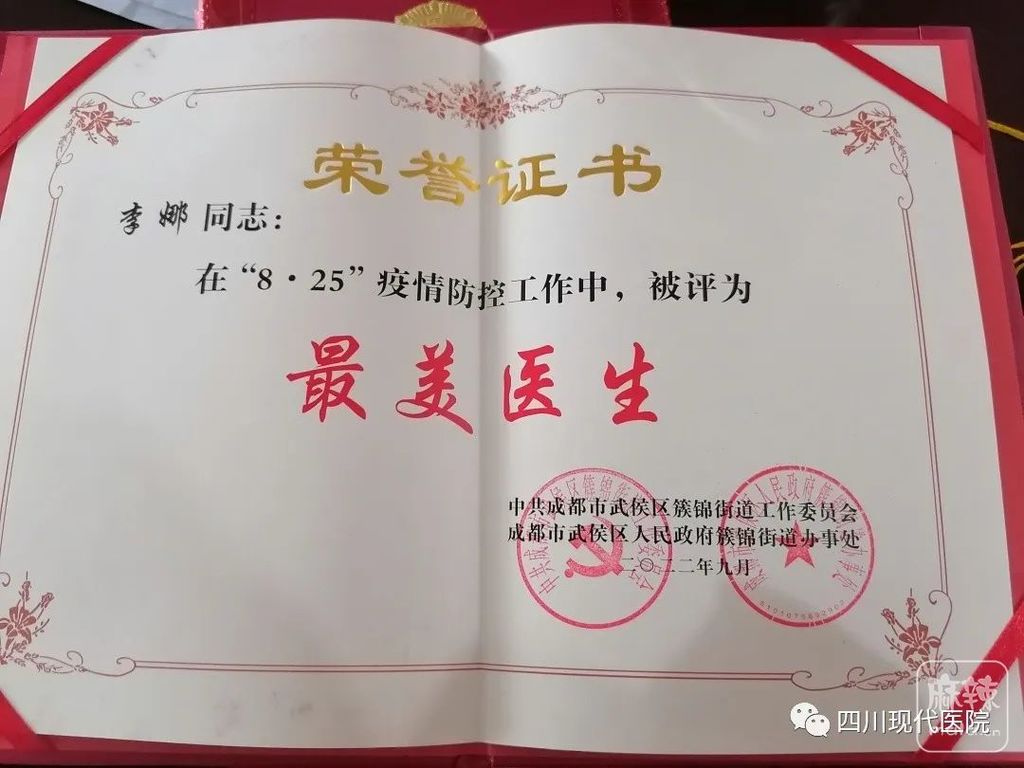 荣誉证书
李娜 同志：
在“8·25”疫情防控工作中，被评为
最美医生
中共成都市武侯区簇锦街道工作委员会
成都市武侯区人民政府簇锦街道办事处
二〇二二年九月
四川现代医院
麻辣